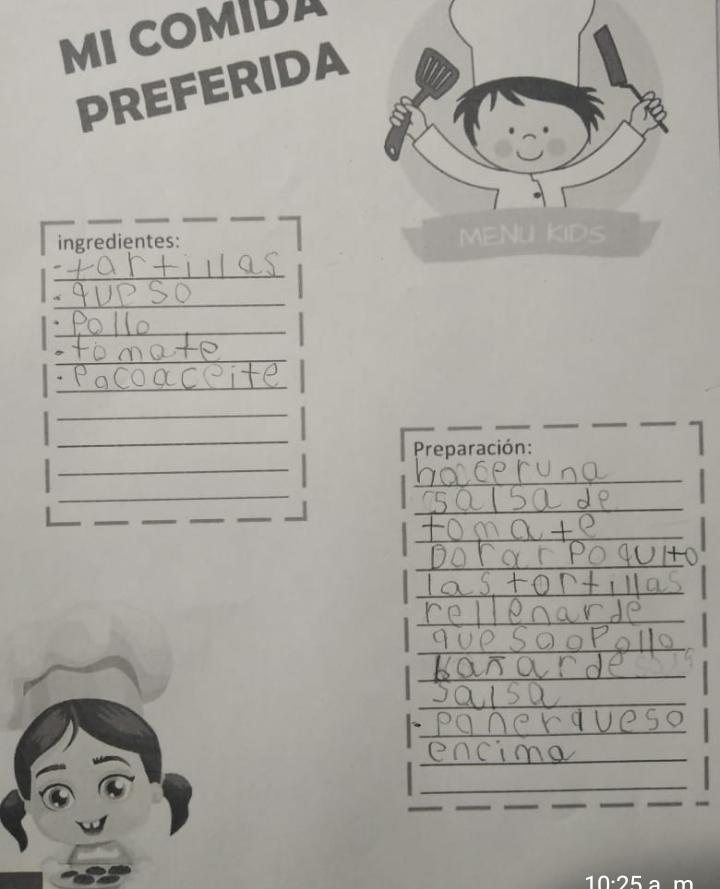 MI COMIDA
PREFERIDA
MENU KIDS
ingredientes:
• tartillas
• queso
• Pollo
• tomate
• Pocoaceite
Preparación:
haceruna
salsa de
tomate
Dorar Poquito
las tortillas
rellenarde
quesooPollo
bañarde
salsa
• Ponerqueso
encima
10:25 a. m.